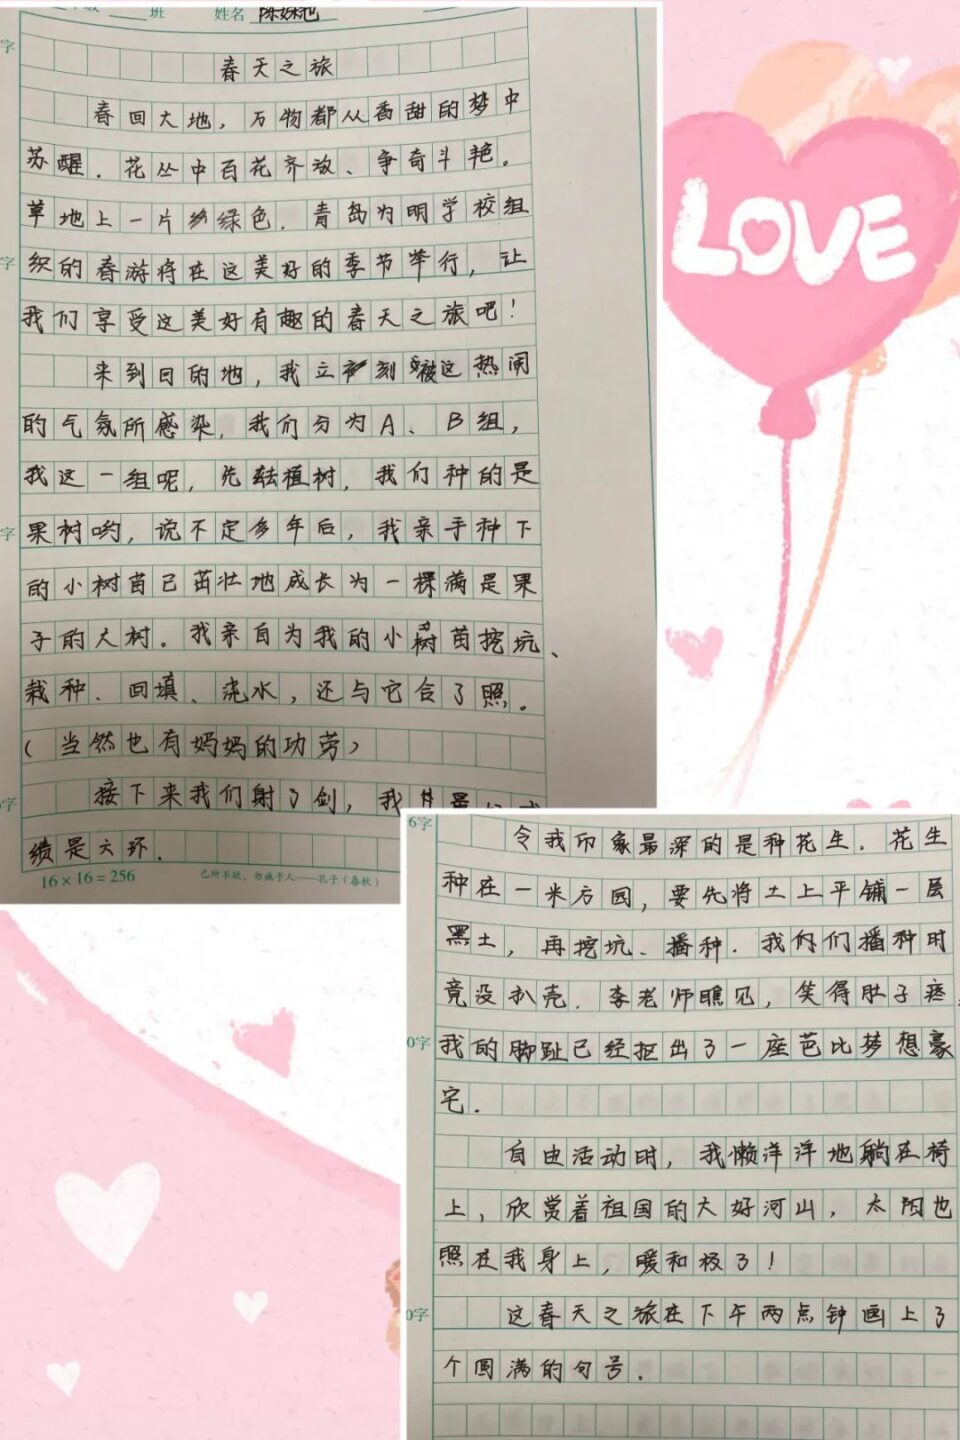 班 姓名
字
春天之旅
春回大地，万物都从香甜的梦中
苏醒．花丛中百花齐放、争奇斗艳。
草地上一片绿色．青岛为明学校组
字
织的春游将在这美好的季节举行，让
我们享受这美好有趣的春天之旅吧！
来到目的地，我立刻被这热闹
的气氛所感染，我们分为A、B组，
我这一组呢，先去植树，我们种的是
字
果树哟，说不定多年后，我亲手种下
的小树苗已茁壮地成长为一棵满是果
子的大树．我亲自为我的小树苗挖坑、
栽种、回填、浇水，还与它合了照。
（当然也有妈妈的功劳）
字
接下来我们射了剑，我
绩是六环．
16×16=256 己所不欲，勿施于人——孔子（春秋）
6字
令我印象最深的是种花生．花生
种在一米方园，要先将土上平铺一层
黑土，再挖坑、播种．我们播种时
竟没扒壳．李老师瞧见，笑得肚子疼，
0字
我的脚趾已经抠出了一座芭比梦想豪
宅．
自由活动时，我懒洋洋地躺在椅
上，欣赏着祖国的大好河山，太阳也
照在我身上，暖和极了！
0字
这春天之旅在下午两点钟画上了
个圆满的句号．
LOVE